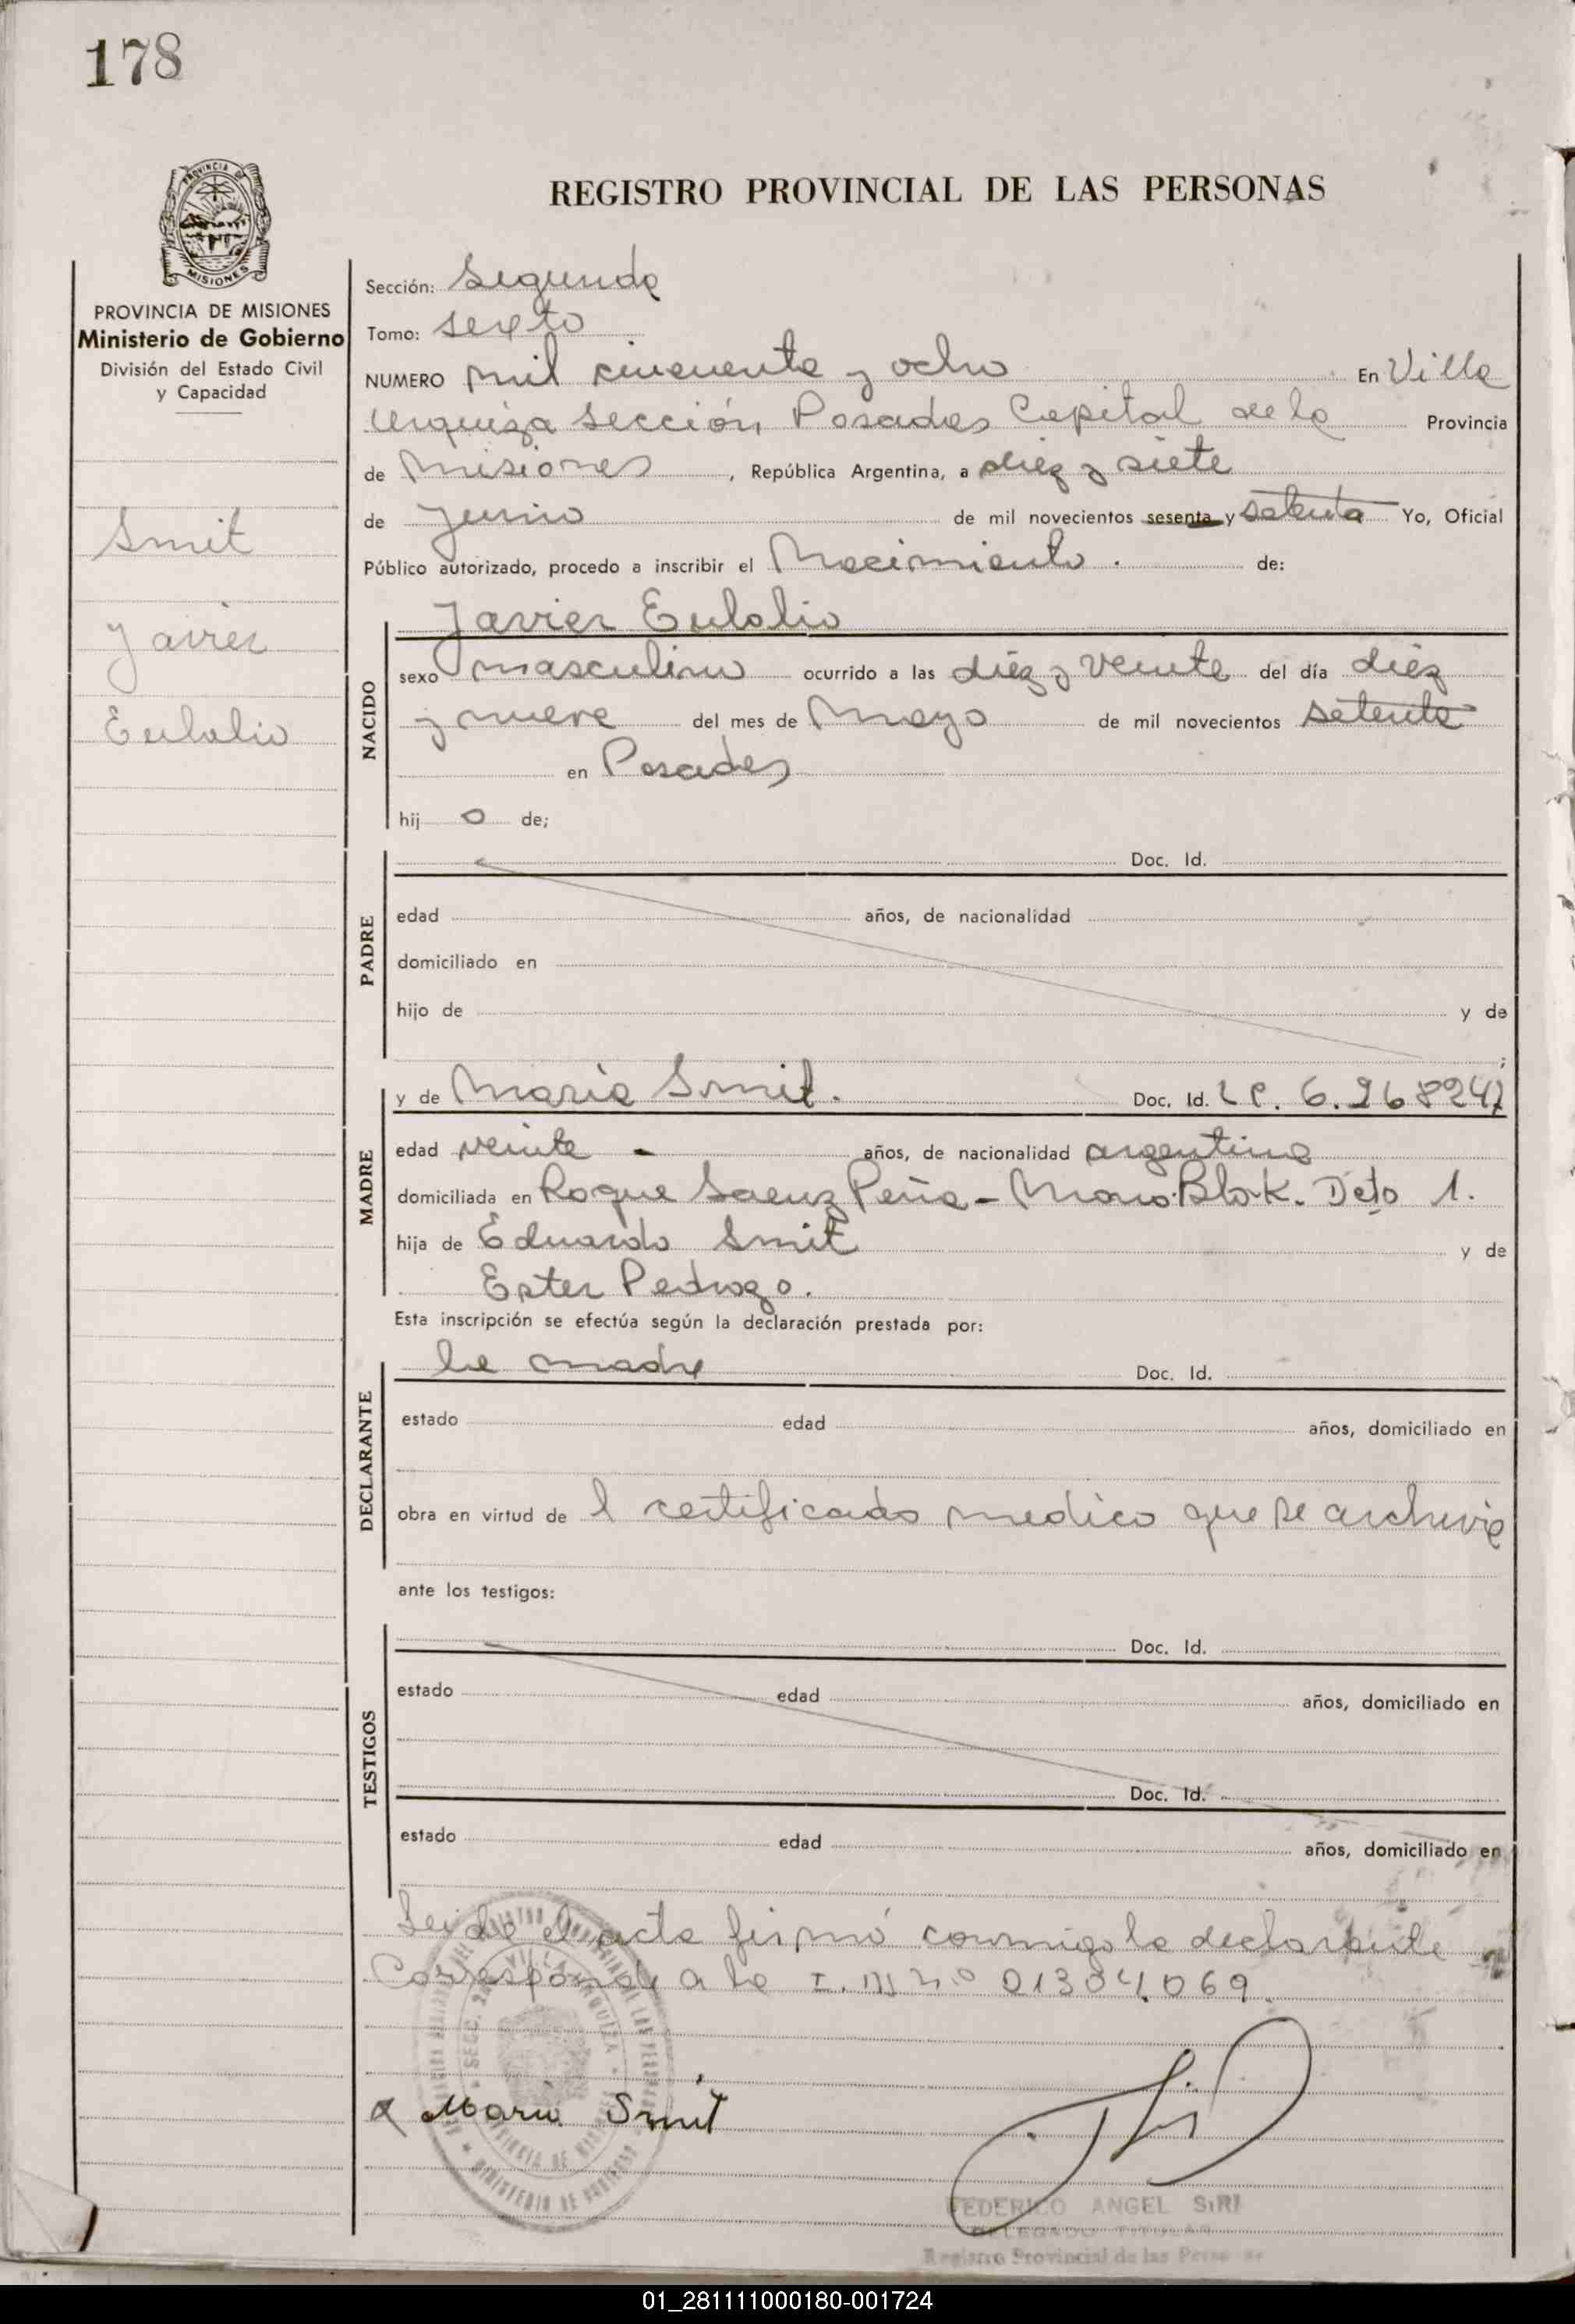 178
PROVINCIA DE
MISIONES
REGISTRO PROVINCIAL DE LAS PERSONAS
PROVINCIA DE MISIONES
Ministerio de Gobierno
División del Estado Civil
y Capacidad
Smit
Javier
Eulalio
Sección: Segunda
Tomo: sexto
NUMERO mil cincuenta y ocho En Villa
Urquiza sección, Posadas Capital de la Provincia
de Misiones, República Argentina, a diez y siete
de Junio de mil novecientos sesenta y setenta Yo, Oficial
Público autorizado, procedo a inscribir el Nacimiento. de:
NACIDO
Javier Eulalio
sexo masculino ocurrido a las diez y veinte del día diez
y nueve del mes de Mayo de mil novecientos setenta
en Posadas
hij o de;
PADRE
Doc. Id.
edad años, de nacionalidad
domiciliado en
hijo de y de
;
MADRE
y de María Smit. Doc. Id. LC. 6.268247
edad veinte - años, de nacionalidad argentina
domiciliada en Roque Saenz Peña - Mono.Blok. Dto 1.
hija de Eduardo Smit y de
Ester Pedrozo.
Esta inscripción se efectúa según la declaración prestada por:
DECLARANTE
la madre Doc. Id.
estado edad años, domiciliado en
obra en virtud de l certificado medico que se archiva
ante los testigos:
TESTIGOS
Doc. Id.
estado edad años, domiciliado en
Doc. Id.
estado edad años, domiciliado en
Leida el acta firmó conmigo la declarante
Corresponde a la I. Nº 21304.069.
Maria Smit
FEDERICO ANGEL SIRI
DELEGADO TITULAR
Registro Provincial de las Personas
01_281111000180-001724